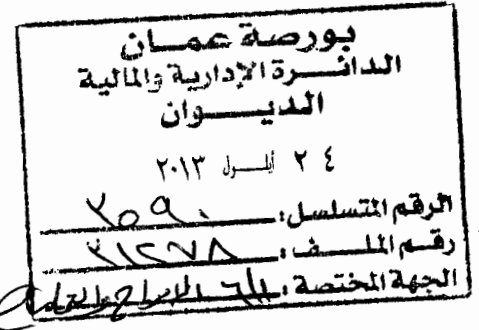 بورصة عمان
الدائرة الإدارية والمالية
الديوان
٢٤ أيلول ٢٠١٣
الرقم المتسلسل: ٣٥٩٠
رقم الملف: ٣١٢٧٨
الجهة المختصة: الإدراج